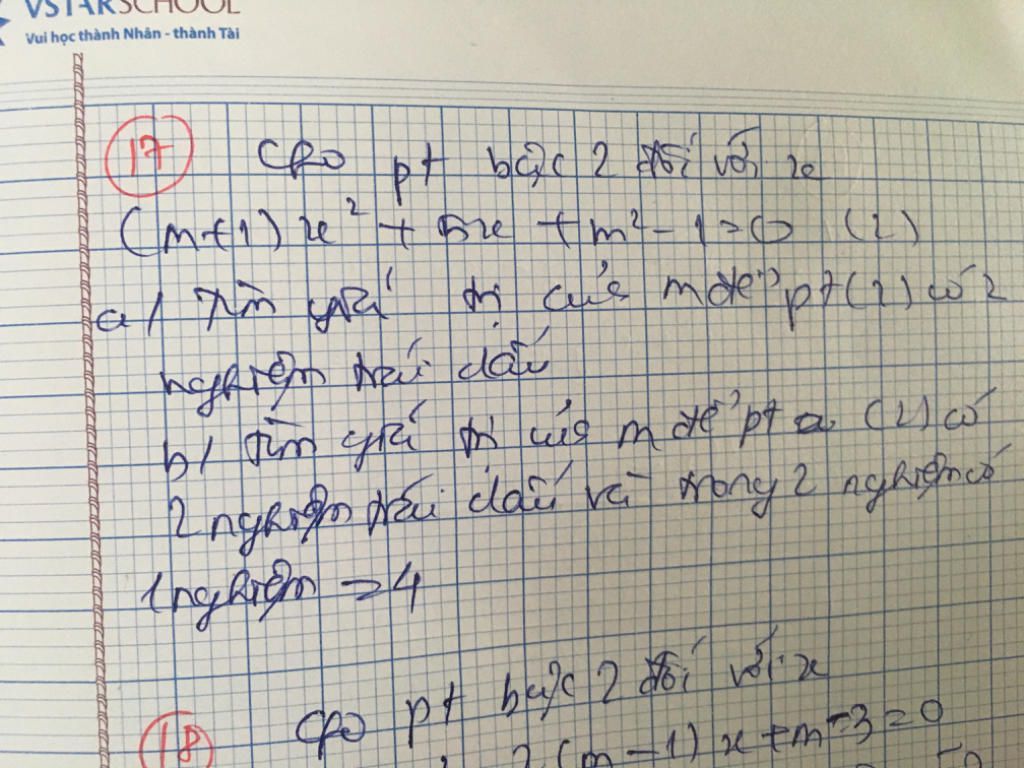 VSTARSCHOOL
Vui học thành Nhân - thành Tài
17 Cho pt bậc 2 đối với x
(m+1)x² + 5x + m² - 1 = 0 (2)
a/ Tìm giá trị của m để pt (2) có 2
nghiệm trái dấu
b/ Tìm giá trị của m để pt (2) có
2 nghiệm trái dấu và trong 2 nghiệm có
1 nghiệm = 4
18 Cho pt bậc 2 đối với x
2(m-1)x + m - 3 = 0